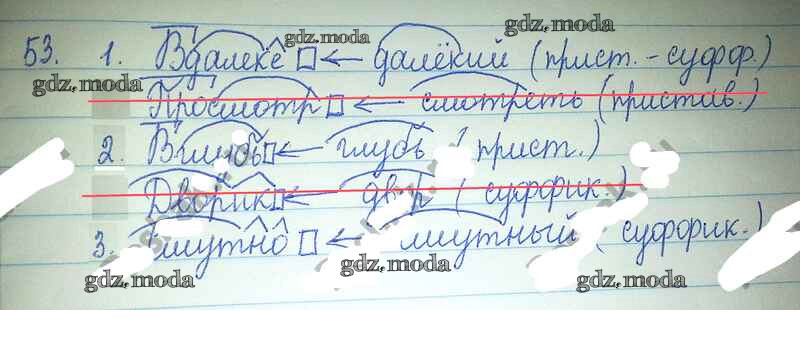 53. 1. Вдалеке ← далёкий (прист.-суфф.)
Просмотр ← смотреть (пристав.)
2. Вглубь ← глубь (прист.)
Дворик ← двор (суффик.)
3. Смутно ← смутный (суффик.)
gdz.moda
gdz.moda
gdz.moda
gdz.moda
gdz.moda
gdz.moda